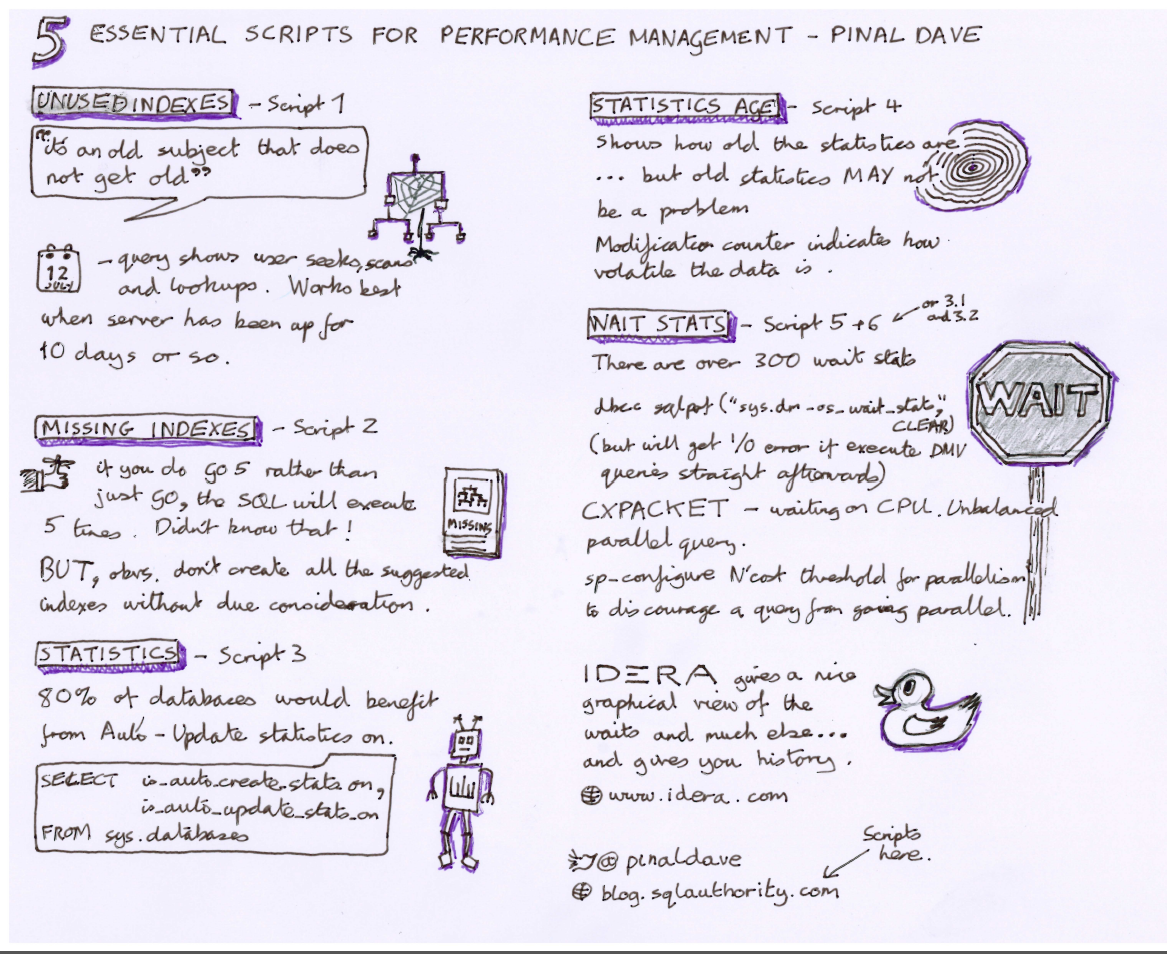 5 ESSENTIAL SCRIPTS FOR PERFORMANCE MANAGEMENT - PINAL DAVE
UNUSED INDEXES - Script 1
"it's an old subject that does
not get old"
12
JULY
- query shows user seeks, scans
and lookups. Works best
when server has been up for
10 days or so.
MISSING INDEXES - Script 2
if you do GO 5 rather than
just GO, the SQL will execute
5 times. Didn't know that!
MISSING
BUT, obvs. don't create all the suggested
indexes without due consideration.
STATISTICS - Script 3
80% of databases would benefit
from Auto-Update statistics on.
SELECT is_auto_create_stats_on,
is_auto_update_stats_on
FROM sys.databases
STATISTICS AGE - Script 4
Shows how old the statistics are
... but old statistics MAY not
be a problem
Modification counter indicates how
volatile the data is.
WAIT STATS - Script 5 + 6
or 3.1
and 3.2
There are over 300 wait stats
WAIT
dbcc sqlperf ("sys.dm_os_wait_stats",
CLEAR)
(but will get 1/0 error if execute DMV
queries straight afterwards)
CXPACKET - waiting on CPU. Unbalanced
parallel query.
sp-configure N'cost threshold for parallelism
to discourage a query from going parallel.
IDERA gives a nice
graphical view of the
waits and much else...
and gives you history.
www.idera.com
Scripts
here.
@pinaldave
blog.sqlauthority.com